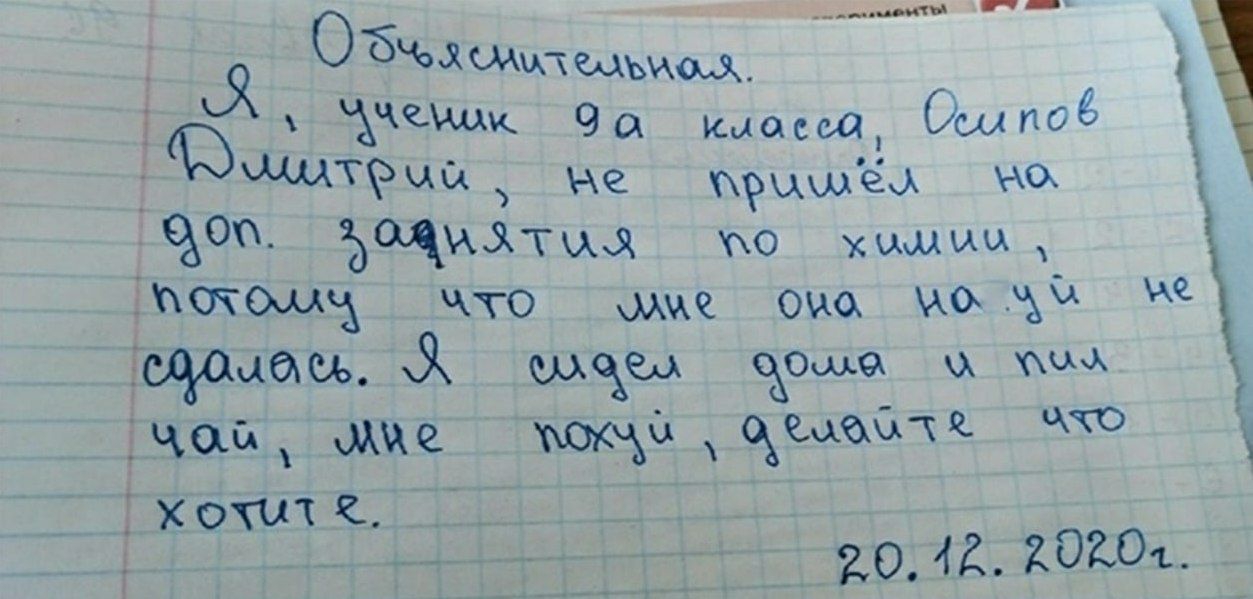 эксперименты
Объяснительная.
Я, ученик 9а класса, Осипов
Дмитрий, не пришёл на
доп. заднятия по химии,
потому что мне она на уй не
сдалась. Я сидел дома и пил
чай, мне похуй, делайте что
хотите.
20.12.2020г.